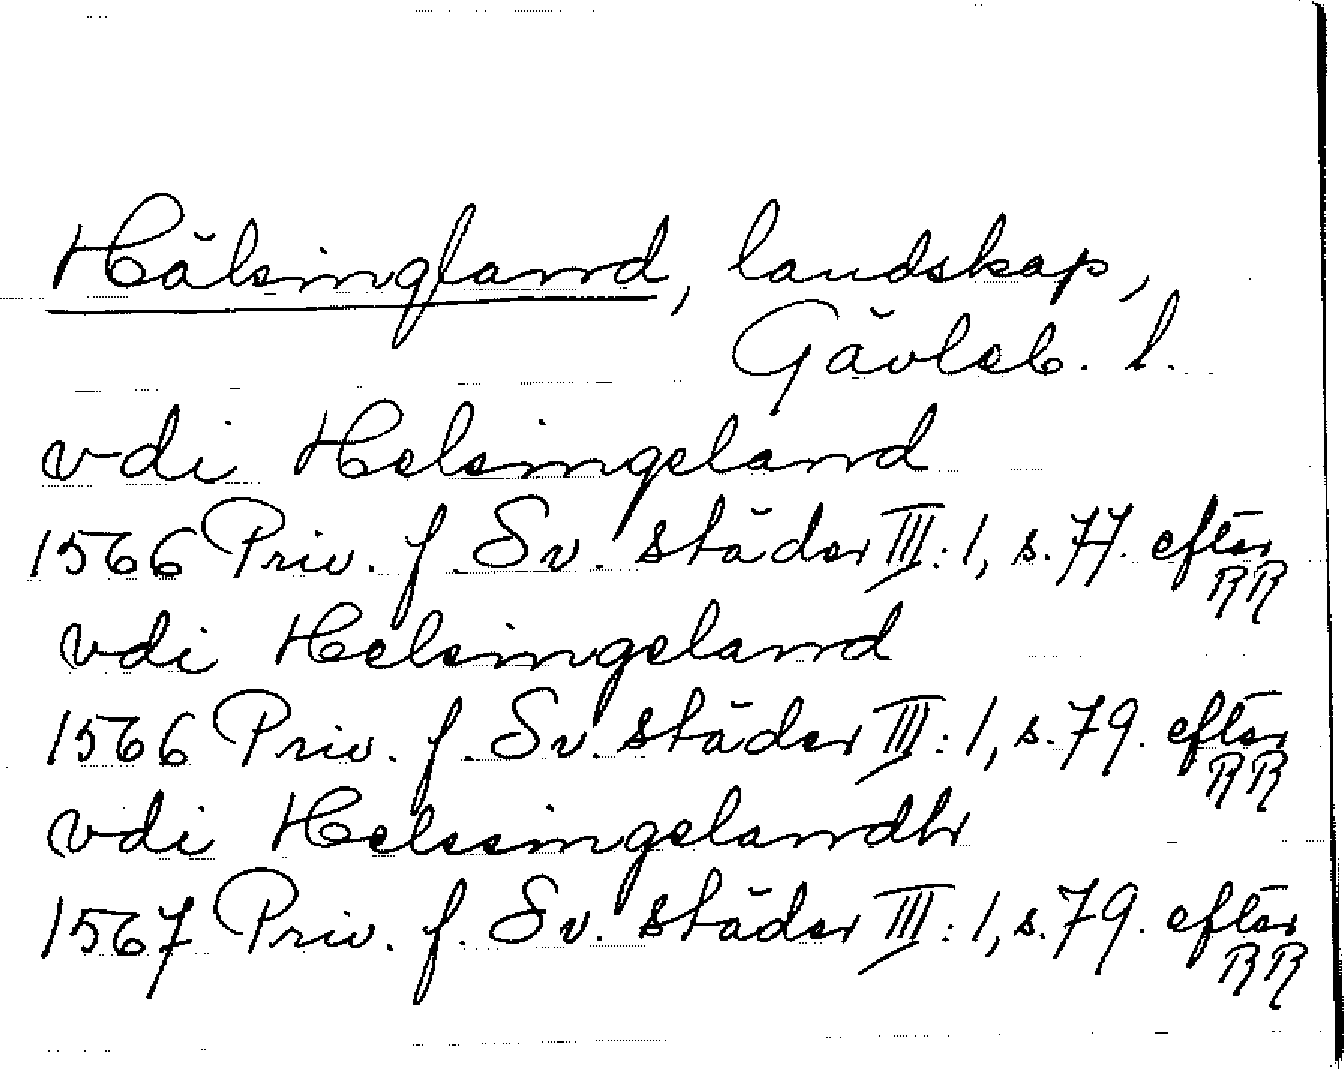 Hälsingland, landskap,
Gävleb. l.
vdi Helsingeland
1566 Priv. f. Sv. städer III: 1, s. 77. efter RR
vdi Helsingeland
1566 Priv. f. Sv. städer III: 1, s. 79. efter RR
vdi Helssingelandh
1567 Priv. f. Sv. städer III: 1, s. 79. efter RR